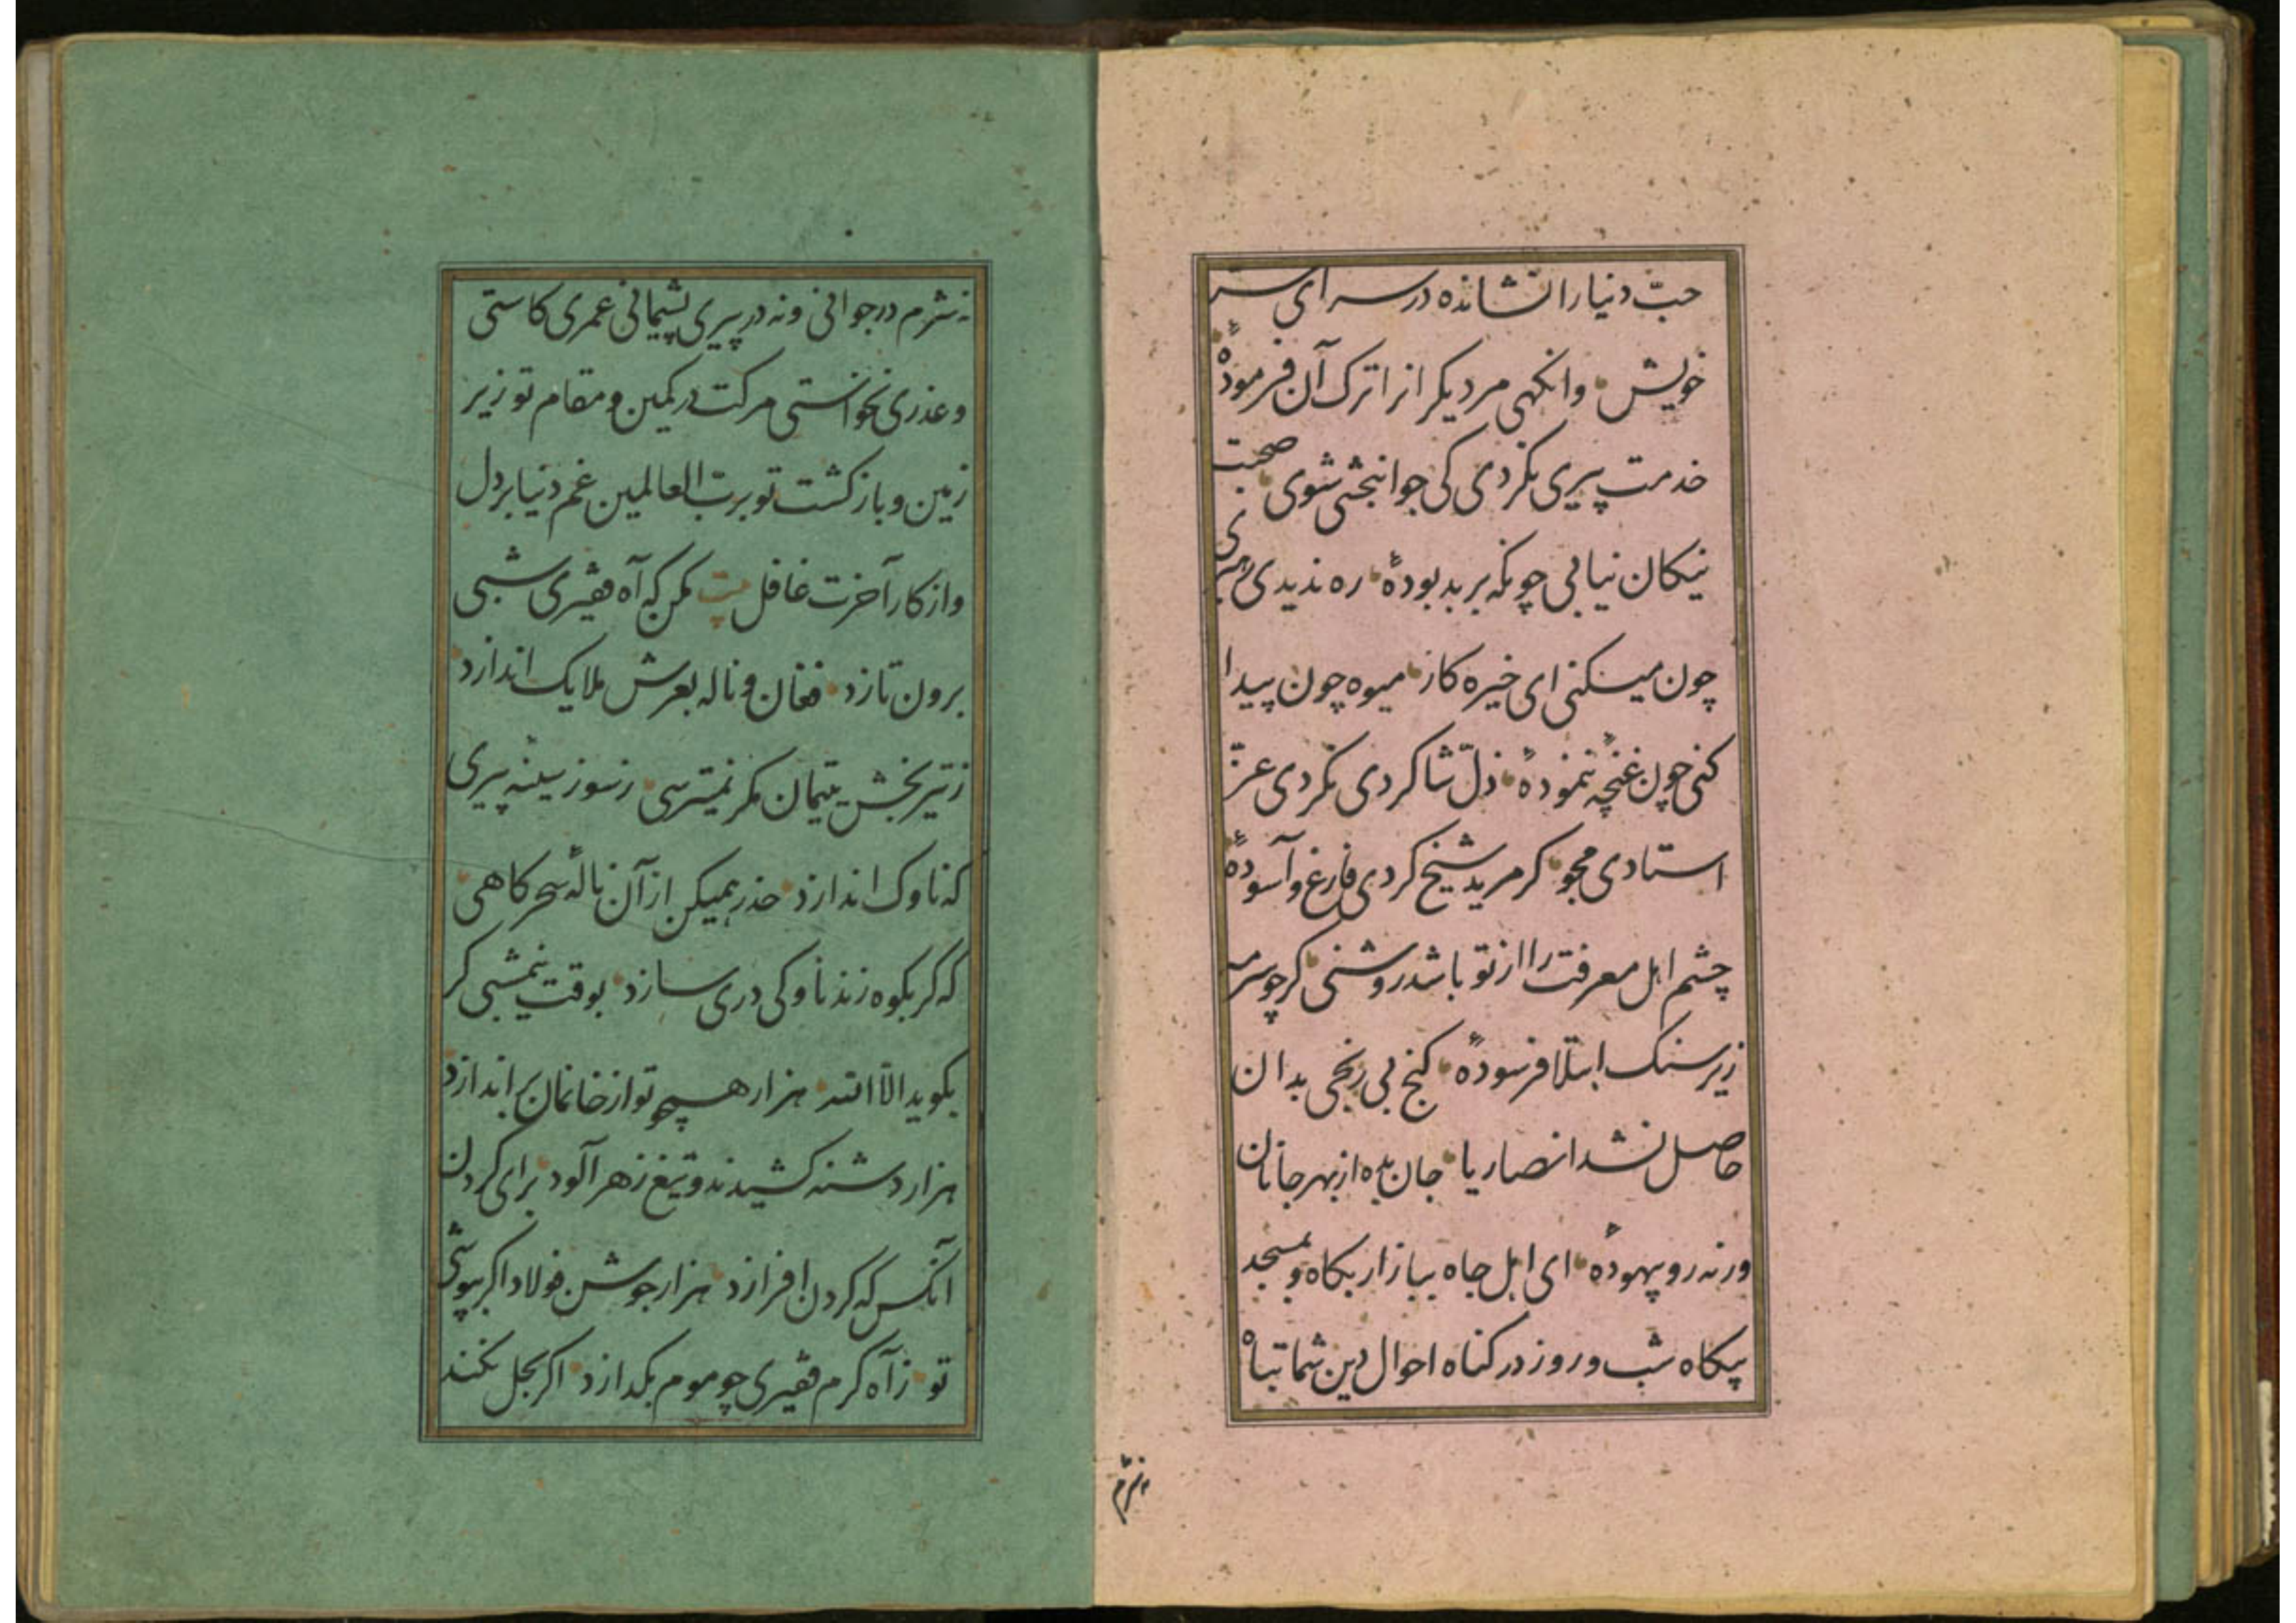 حبّ دنیا را نشانده در سرای سر
خویش وانکهی مر دیکر انرا ترک آن فرمودهٔ
خدمت پیری نکردی کی جوانبختی شوی صحبت
نیکان نیابی چونکه بر بد بودهٔ ره ندیدی
چون میکنی ای خیره کار میوه چون پیدا
کنی چون غنچه ننمودهٔ ذلّ شاکردی نکردی عزّ
استادی مجو کر مرید شیخ کردی فارغ و آسودهٔ
چشم اهل معرفت را از تو باشد روشنی کر چو سرمه
زیر سنک ابتلا فرسودهٔ کنج بی رنجی بدان
حاصل نشد انصاریا جان بده از بهر جانان
ورنه رو بیهودهٔ ای اهل جاه ببازار بکاه و بمسجد
بیکاه شب و روز در کناه احوال دین شما تباه
نه شرم
نه شرم در جوانی و نه در پیری پشیمانی عمری کاستی
و عذری نخواستی مرکت در کمین و مقام تو زیر
زمین و بازکشت تو بربّ العالمین غم دنیا بر دل
و از کار آخرت غافل بیت مکن که آه فقیری شبی
برون تازد فغان و ناله بعرش ملایک اندازد
ز تیر بخش یتیمان مکر نمیترسی ز سوز سینه پیری
که ناوک اندازد حذر همیکن از آن نالهٔ سحرکاهی
که کر بکوه زند ناوکی دری سازد بوقت نیمشبی کر
بکوید الا الله هزار همچو تو از خانمان براندازد
هزار دشنه کشیدند و تیغ زهرآلود برای کردن
آنکس که کردن افرازد هزار جوشن فولاد اکر بپوشی
تو ز آه کرم فقیری چو موم بکدازد اکر بحل نکنند